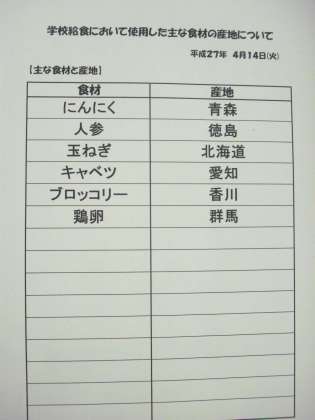 学校給食において使用した主な食材の産地について
平成27年 4月14日(火)
【主な食材と産地】
食材 産地
にんにく 青森
人参 徳島
玉ねぎ 北海道
キャベツ 愛知
ブロッコリー 香川
鶏卵 群馬